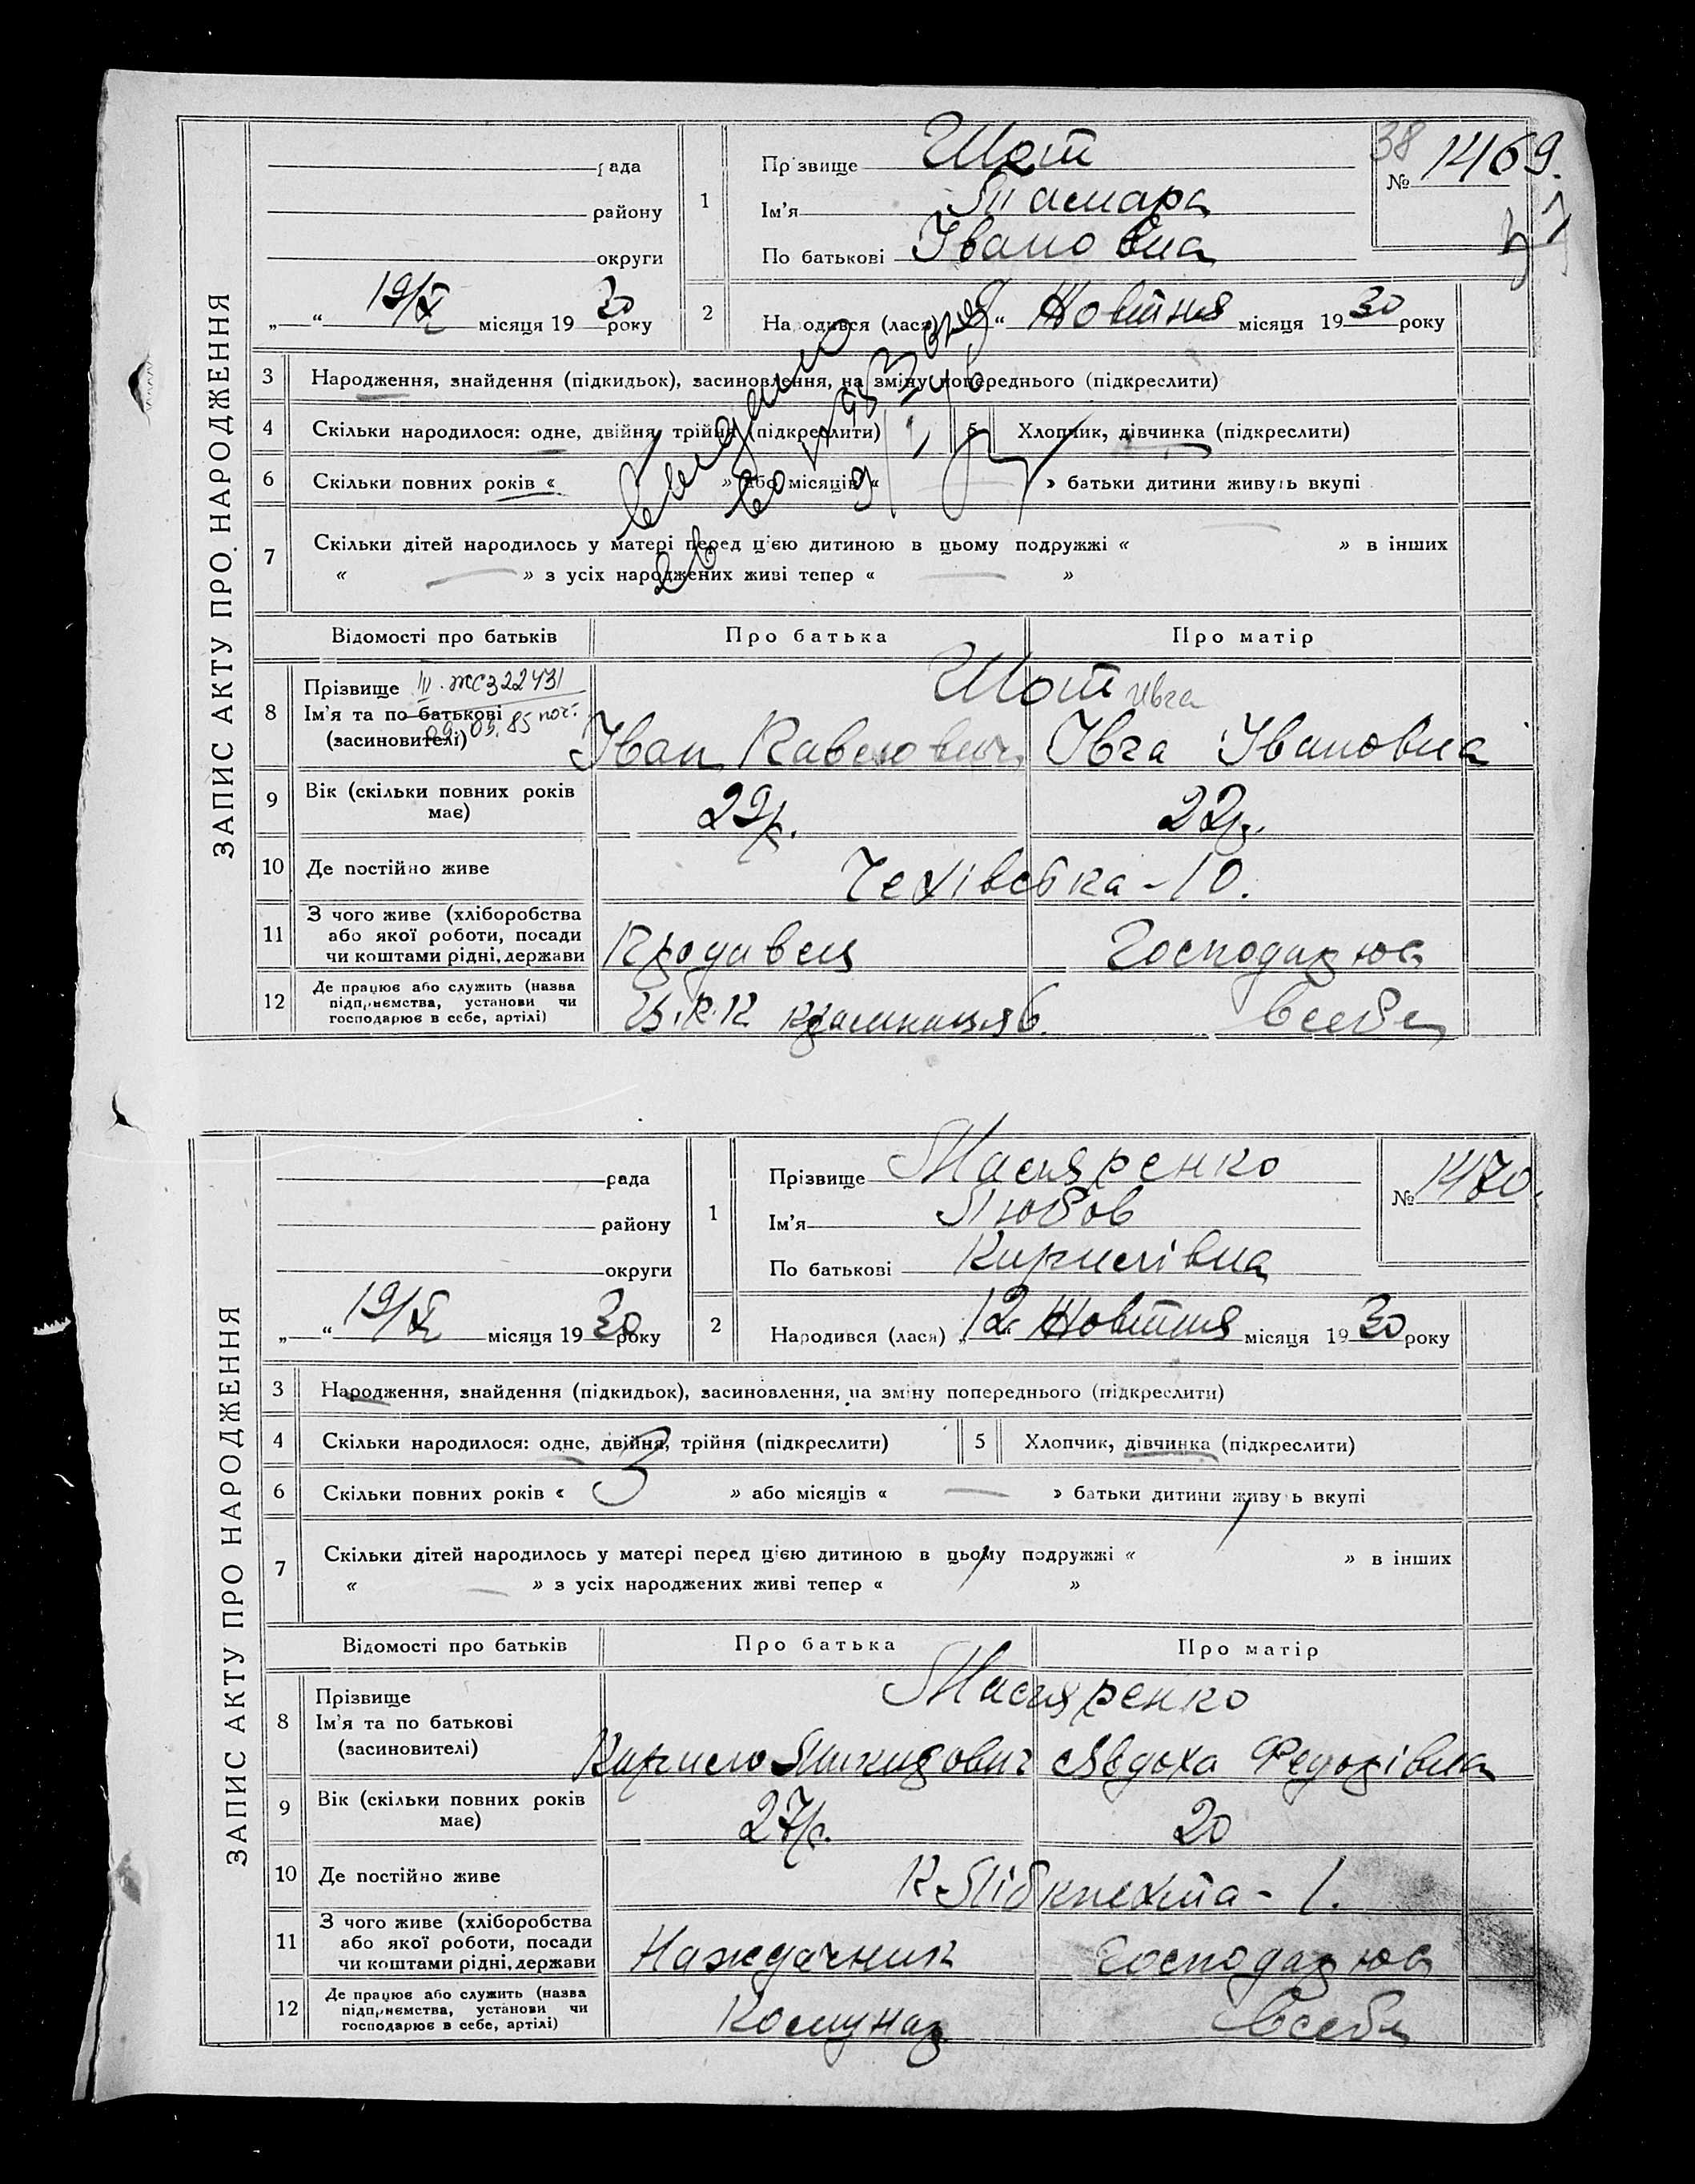 ЗАПИС АКТУ ПРО НАРОДЖЕННЯ
рада
району
округи
„ “ 19/X місяця 1930 року
1
Прізвище Шот
Ім’я Тамара
По батькові Івановна
38
№ 1469.
2
Народився (лася) “ Жовтня місяця 1930 року
3 Народження, знайдення (підкидьок), засиновлення, на зміну попереднього (підкреслити)
4 Скільки народилося: одне, двійня, трійня (підкреслити)
5 Хлопчик, дівчинка (підкреслити)
6 Скільки повних років « » або місяців « » батьки дитини живуть вкупі
7 Скільки дітей народилось у матері перед цією дитиною в цьому подружжі « » в інших
« » з усіх народжених живі тепер « »
Відомості про батьків Про батька Про матір
8 Прізвище III-ЖС322431 Шот Ивга
Ім’я та по батькові
09.09.85
(засиновителі) Іван Павлович Івга Івановна
9 Вік (скільки повних років має) 29р. 22р.
10 Де постійно живе Чехівська-10.
11 З чого живе (хліборобства або якої роботи, посади чи коштами рідні, держави Продавец Господарює
12 Де працює або служить (назва підприємства, установи чи господарює в себе, артілі) Ц.Р.К крамниця 6. всебе
ЗАПИС АКТУ ПРО НАРОДЖЕННЯ
рада
району
округи
„ “ 19/X місяця 1930 року
1
Прізвище Масляренко
Ім’я Любов
По батькові Кирилівна
№ 1470.
2
Народився (лася) „12“ Жовтня місяця 1930 року
3 Народження, знайдення (підкидьок), засиновлення, на зміну попереднього (підкреслити)
4 Скільки народилося: одне, двійня, трійня (підкреслити)
5 Хлопчик, дівчинка (підкреслити)
6 Скільки повних років « 3 » або місяців « — » батьки дитини живуть вкупі
7 Скільки дітей народилось у матері перед цією дитиною в цьому подружжі « » в інших
« — » з усіх народжених живі тепер « »
Відомості про батьків Про батька Про матір
8 Прізвище Масляренко
Ім’я та по батькові
(засиновителі) Кирило Явдоха Федорівна
9 Вік (скільки повних років має) 27р. 20
10 Де постійно живе К. Лібкнехта - 1.
11 З чого живе (хліборобства або якої роботи, посади чи коштами рідні, держави Наждачник Господарює
12 Де працює або служить (назва підприємства, установи чи господарює в себе, артілі) Комунар всебе